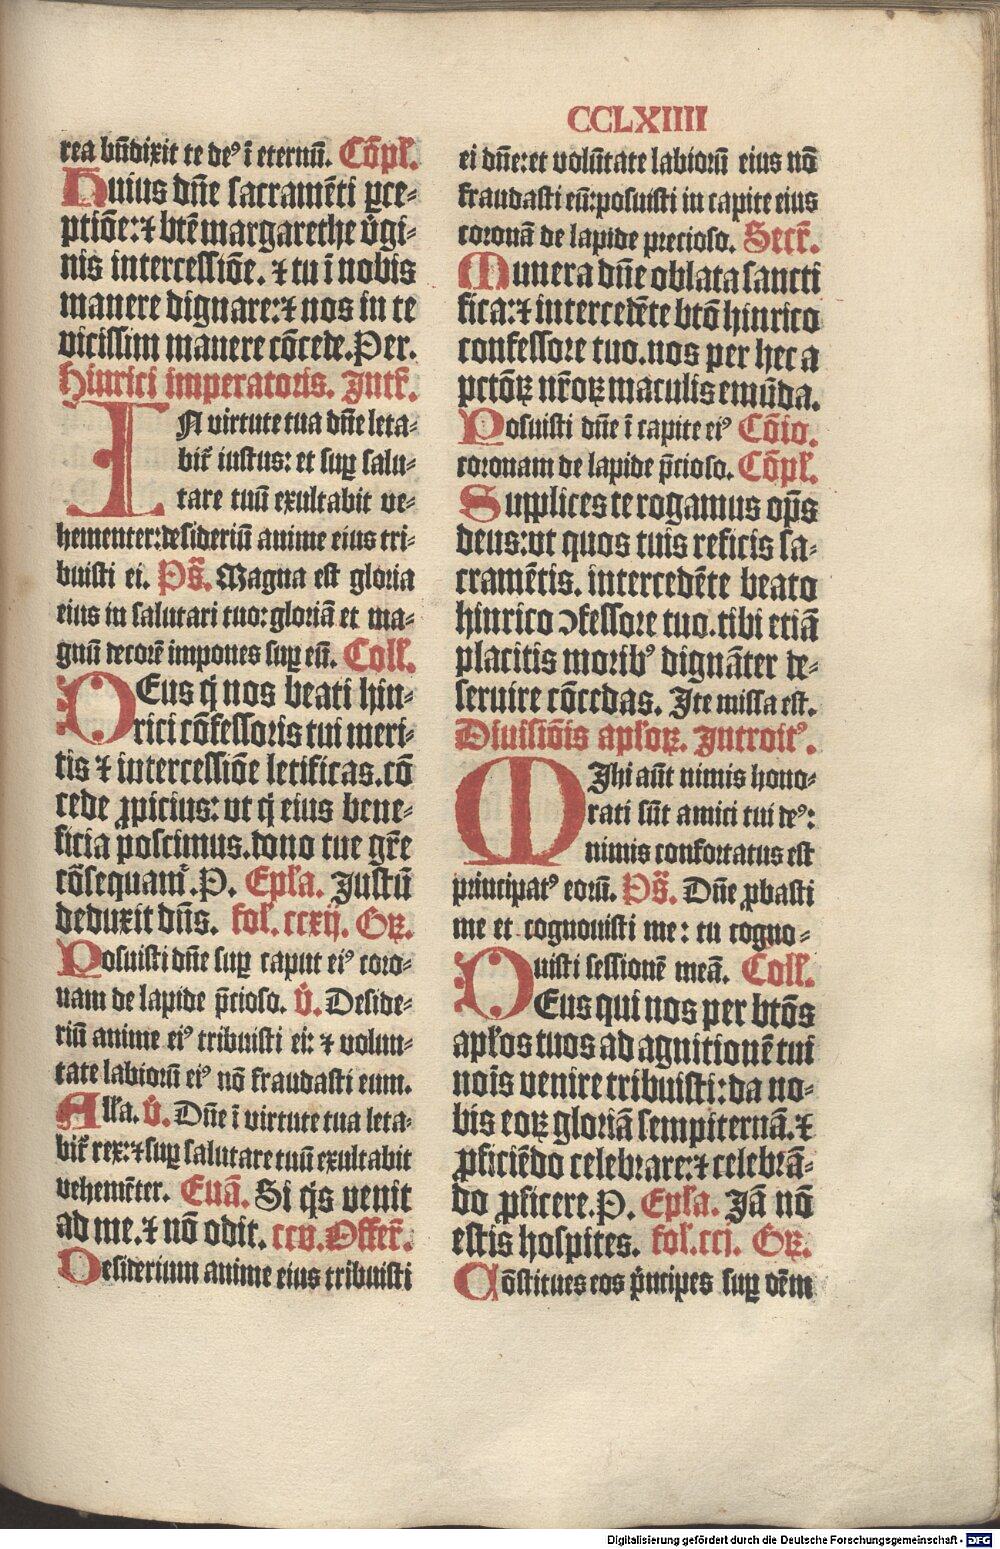 CCLXIIII
rea bn̄dixit te deꝰ ī eternū. Cōpł.
Huius dn̄e sacramēti ꝑce-
ptiōe: ⁊ btē margarethe v̓gi-
nis intercessiōe. ⁊ tu ī nobis
manere dignare: ⁊ nos in te
vicissim manere cōcede. Per.
Hinrici imperatoris. Intr̄.
IN virtute tua dn̄e leta-
bit̉ iustus: et suꝑ salu-
tare tuū exultabit ve-
hementer: desideriū anime eius tri-
buisti ei. Ps̄. Magna est gloria
eius in salutari tuo: gloriā et ma-
gnū decorē impones suꝑ eū. Coll̄.
DEus q̓ nos beati hin-
rici cōfessoris tui meri-
tis ⁊ intercessiōe letificas. cō
cede ꝓpicius: vt q̓ eius bene-
ficia poscimus. dono tue gr̄e
cōsequamr̉. P. Epła. Justū
deduxit dn̄s. fol̉. ccxij. Gꝝ.
Posuisti dn̄e suꝑ caput eiꝰ coro-
nam de lapide p̄cioso. V̓. Deside-
riū anime eiꝰ tribuisti ei: ⁊ volun-
tate labiorū eiꝰ nō fraudasti eum.
Alła. V̓. Dn̄e ī virtute tua leta-
bit̉ rex: ⁊ suꝑ salutare tuū exultabit
vehemēter. Euā. Si q̓s venit
ad me. ⁊ nō odit. ccv. Offer̄.
Desiderium anime eius tribuisti
ei dn̄e: et volūtate labiorū eius nō
fraudasti eū: posuisti in capite eius
coronā de lapide precioso. Secr̄.
Munera dn̄e oblata sancti
fica: ⁊ intercedēte btō hinrico
confessore tuo. nos per hec a
pctōꝝ nr̄oꝝ maculis emūda.
Posuisti dn̄e ī capite eiꝰ Cōio.
coronam de lapide p̄cioso. Cōpł.
Supplices te rogamus op̄s
deus: vt quos tuis reficis sa-
cramētis. intercedēte beato
hinrico ↄfessore tuo. tibi etiā
placitis moribꝰ dignāter de-
seruire cōcedas. Ite missa est.
Diuisiōis apłoꝝ. Introitꝰ.
MIhi aūt nimis hono-
rati sūt amici tui deꝰ:
nimis confortatus est
principatꝰ eorū. Ps̄. Dn̄e ꝓbasti
me et cognouisti me: tu cogno-
uisti sessionē meā. Coll̄.
DEus qui nos per btōs
apłos tuos ad agnitionē tui
noīs venire tribuisti: da no-
bis eoꝝ gloriā sempiternā. ⁊
ꝓficiēdo celebrare: ⁊ celebrā-
do ꝓficere. P. Epła. Jā nō
estis hospites. fol̉. ccj. Gꝝ.
Cōstitues eos p̓ncipes suꝑ oēm
Digitalisierung gefördert durch die Deutsche Forschungsgemeinschaft - DFG